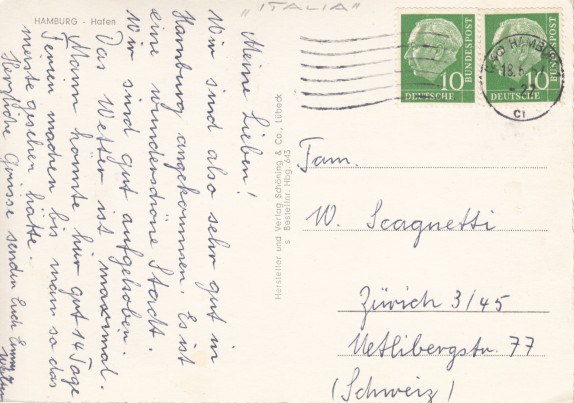 "ITALIA"
HAMBURG - Hafen
Meine Lieben!
Wir sind also sehr gut in
Hamburg angekommen. Es ist
eine wunderschöne Stadt.
Wir sind gut aufgehoben.
Das Wetter ist maximal.
Mann könnte hier gut 14 Tage
Ferien machen bis mann so das
meiste gesehen hätte.
Herzliche Grüsse senden Euch Emmy
Hersteller und Verlag Schöning & Co., Lübeck
s Bestellnr. Hbg. 643
10
DEUTSCHE
BUNDESPOST
10
DEUTSCHE
BUNDESPOST
HAMBURG
18.
CI
Fam.
W. Scagnetti
Zürich 3/45
Uetlibergstr. 77
(Schweiz)